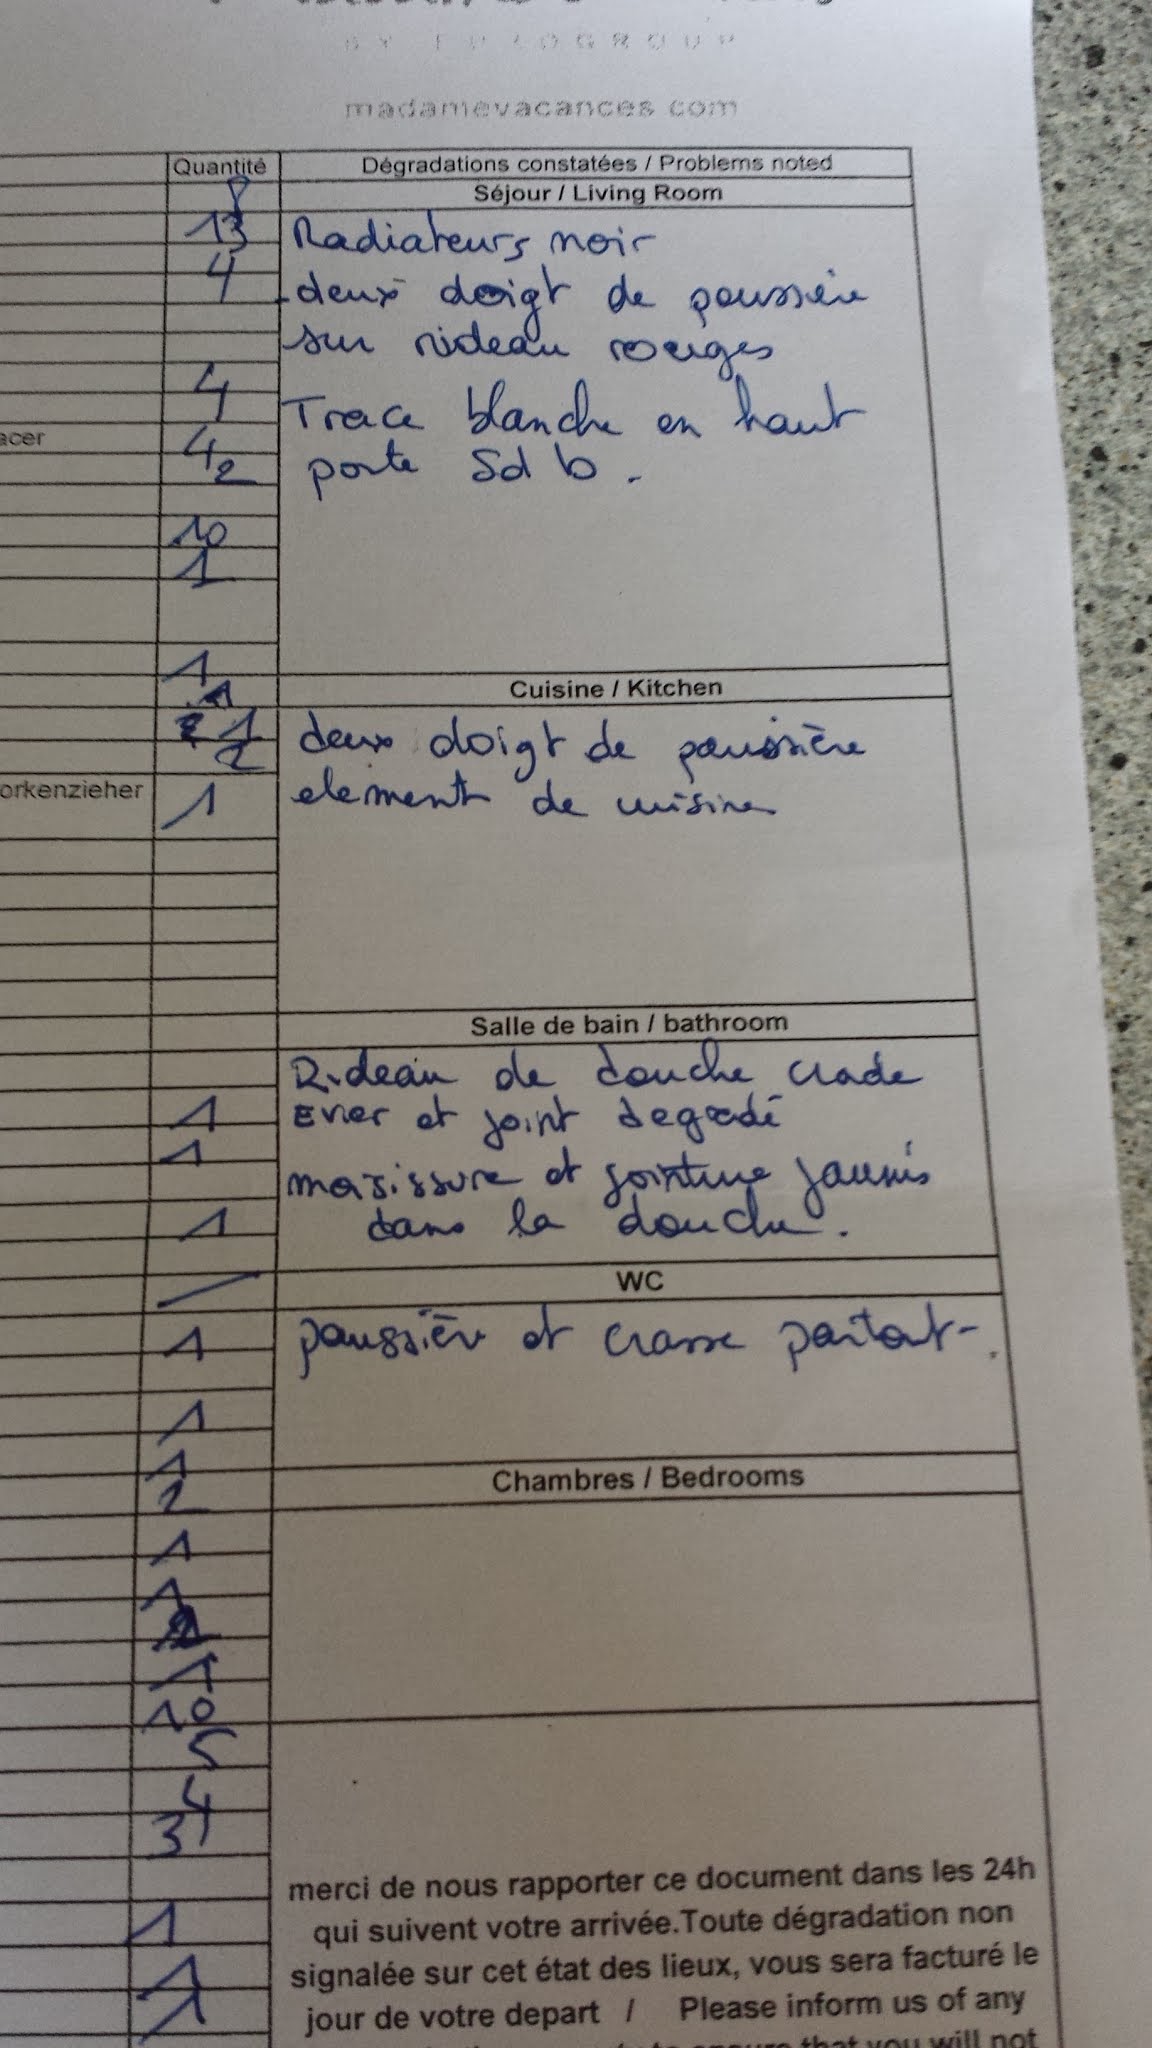 BY EULOGROUP
madamevacances.com
Quantité
Dégradations constatées / Problems noted
Séjour / Living Room
13
Radiateurs noir
4
deux doigt de poussière
sur rideau rouges
4
Trace blanche en haut
acer
4
porte Sdb.
2
10
1
1
Cuisine / Kitchen
1
deux doigt de poussière
2
element de cuisine
orkenzieher
1
Salle de bain / bathroom
Rideau de douche crade
1
Evier et joint degradé
1
moisissure et jointure jaunis
1
dans la douche.
WC
1
poussière et crasse partout-.
1
1
Chambres / Bedrooms
2
1
1
1
10
5
4
3
merci de nous rapporter ce document dans les 24h
1
qui suivent votre arrivée.Toute dégradation non
signalée sur cet état des lieux, vous sera facturé le
1
jour de votre depart / Please inform us of any
1
that you will not